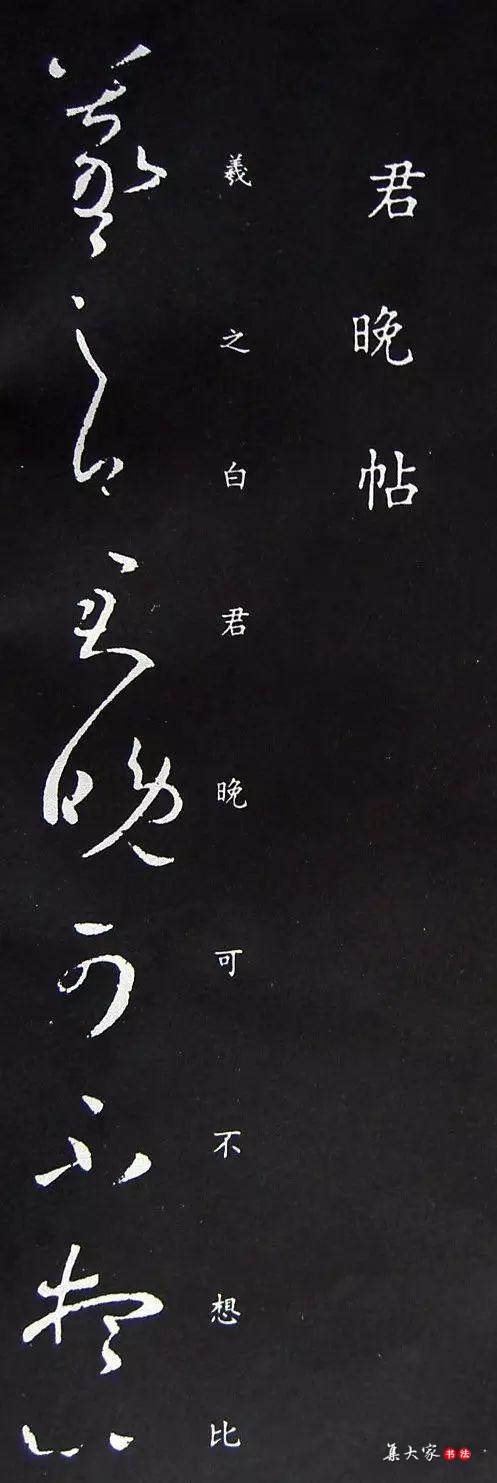 君晚帖
羲之白君晚可不想比
羲之白君晚可不想比
集大家书法